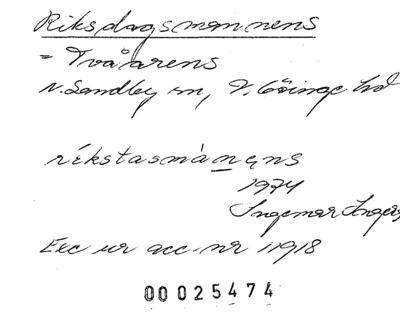 Riksdagsmannens
= Tvååarens
N. Sandby sn, V. Göinge hd
rékstasmànęns
1974
Ingemar Ingers
Exc ur acc. nr 11918
00025474